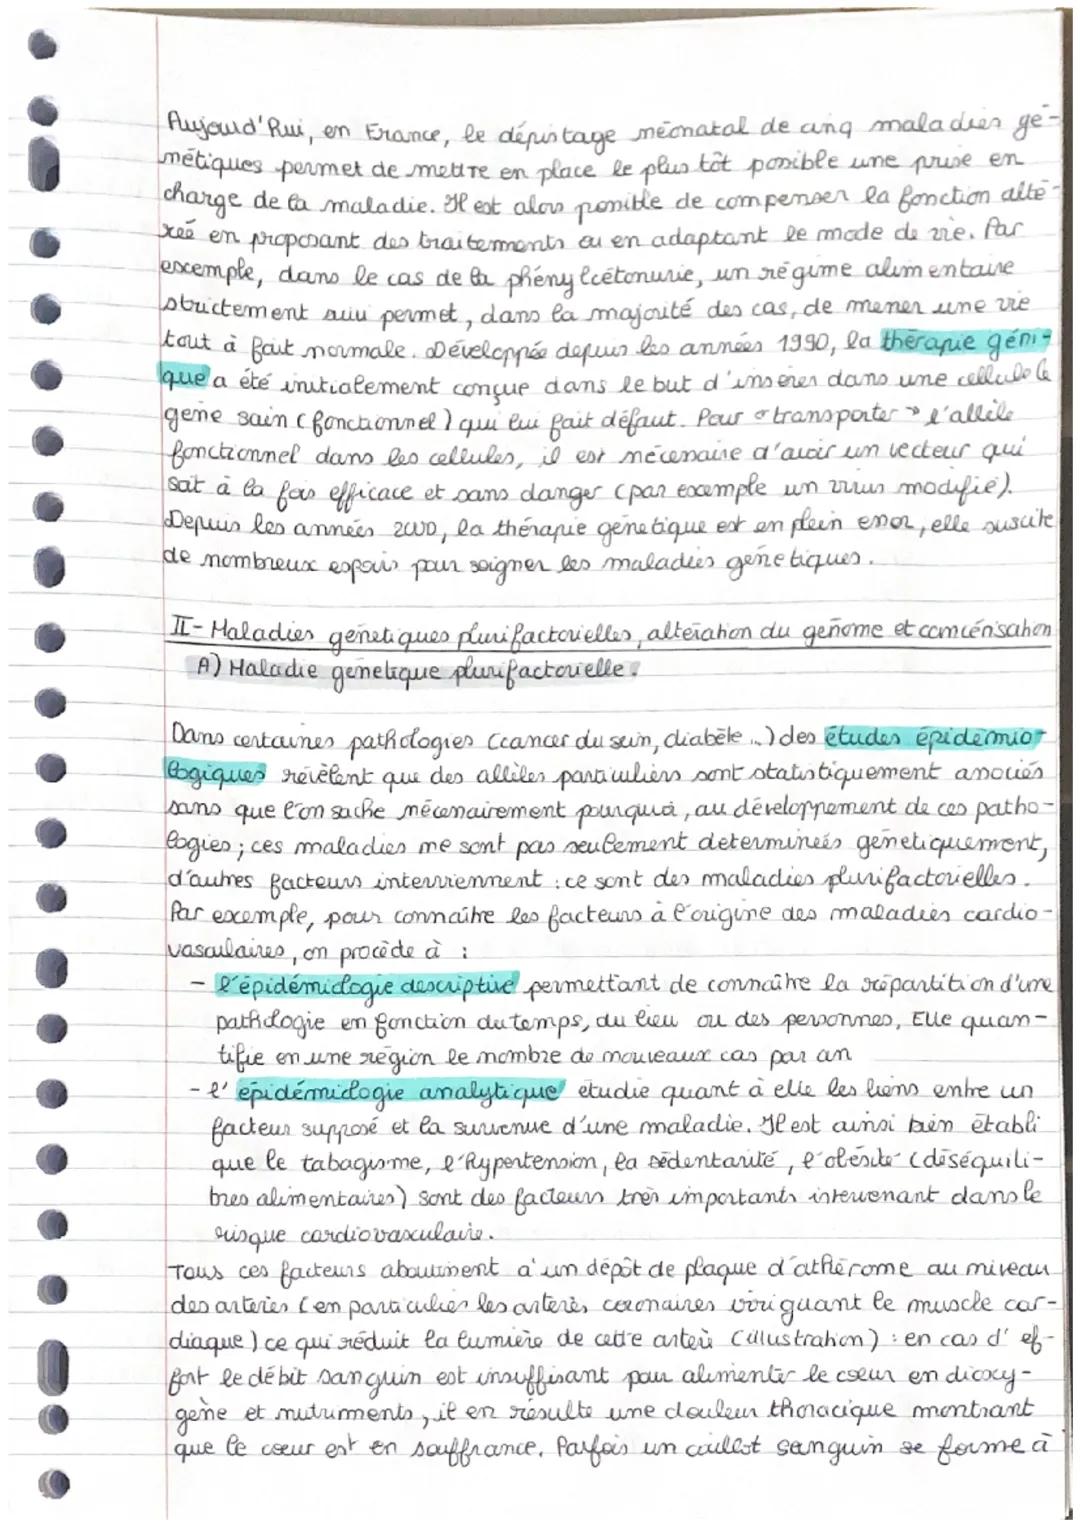 Aujourd'hui, en France, le dépistage néonatal de cinq maladies gé-
nétiques permet de mettre en place le plus tôt possible une prise en
charge de la maladie. Il est alors possible de compenser la fonction alté-
rée en proposant des traitements ou en adaptant le mode de vie. Par
exemple, dans le cas de la phénylcétonurie, un régime alimentaire
strictement suivi permet, dans la majorité des cas, de mener une vie
tout à fait normale. Développée depuis les années 1990, la thérapie géni-
que a été initialement conçue dans le but d'insérer dans une cellule le
gène sain (fonctionnel) qui lui fait défaut. Pour « transporter » l'allèle
fonctionnel dans les cellules, il est nécessaire d'avoir un vecteur qui
soit à la fois efficace et sans danger (par exemple un virus modifié).
Depuis les années 2000, la thérapie génétique est en plein essor, elle suscite
de nombreux espoirs pour soigner les maladies génétiques.
II- Maladies génétiques plurifactorielles, altération du génome et cancérisation
A) Maladie génétique plurifactorielle.
Dans certaines pathologies (cancer du sein, diabète...) des études épidémio-
logiques révèlent que des allèles particuliers sont statistiquement associés
sans que l'on sache nécessairement pourquoi, au développement de ces patho-
logies ; ces maladies ne sont pas seulement determinées génétiquement,
d'autres facteurs interviennent : ce sont des maladies plurifactorielles.
Par exemple, pour connaître les facteurs à l'origine des maladies cardio-
vasculaires, on procède à :
- l'épidémiologie descriptive permettant de connaître la répartition d'une
pathologie en fonction du temps, du lieu ou des personnes, Elle quan-
tifie en une région le nombre de nouveaux cas par an
- l'épidémiologie analytique étudie quant à elle les liens entre un
facteur supposé et la survenue d'une maladie. Il est ainsi bien établi
que le tabagisme, l'hypertension, la sédentarité, l'obésité (déséquili-
bres alimentaires) sont des facteurs très importants intervenant dans le
risque cardiovasculaire.
Tous ces facteurs aboutissent à un dépôt de plaque d'athérome au niveau
des artères (en particulier les artères coronaires irriguant le muscle car-
diaque) ce qui réduit la lumière de cette artère (illustration) : en cas d'ef-
fort le débit sanguin est insuffisant pour alimenter le coeur en dioxy-
gène et nutriments, il en résulte une douleur thoracique montrant
que le coeur est en souffrance. Parfois un caillot sanguin se forme à